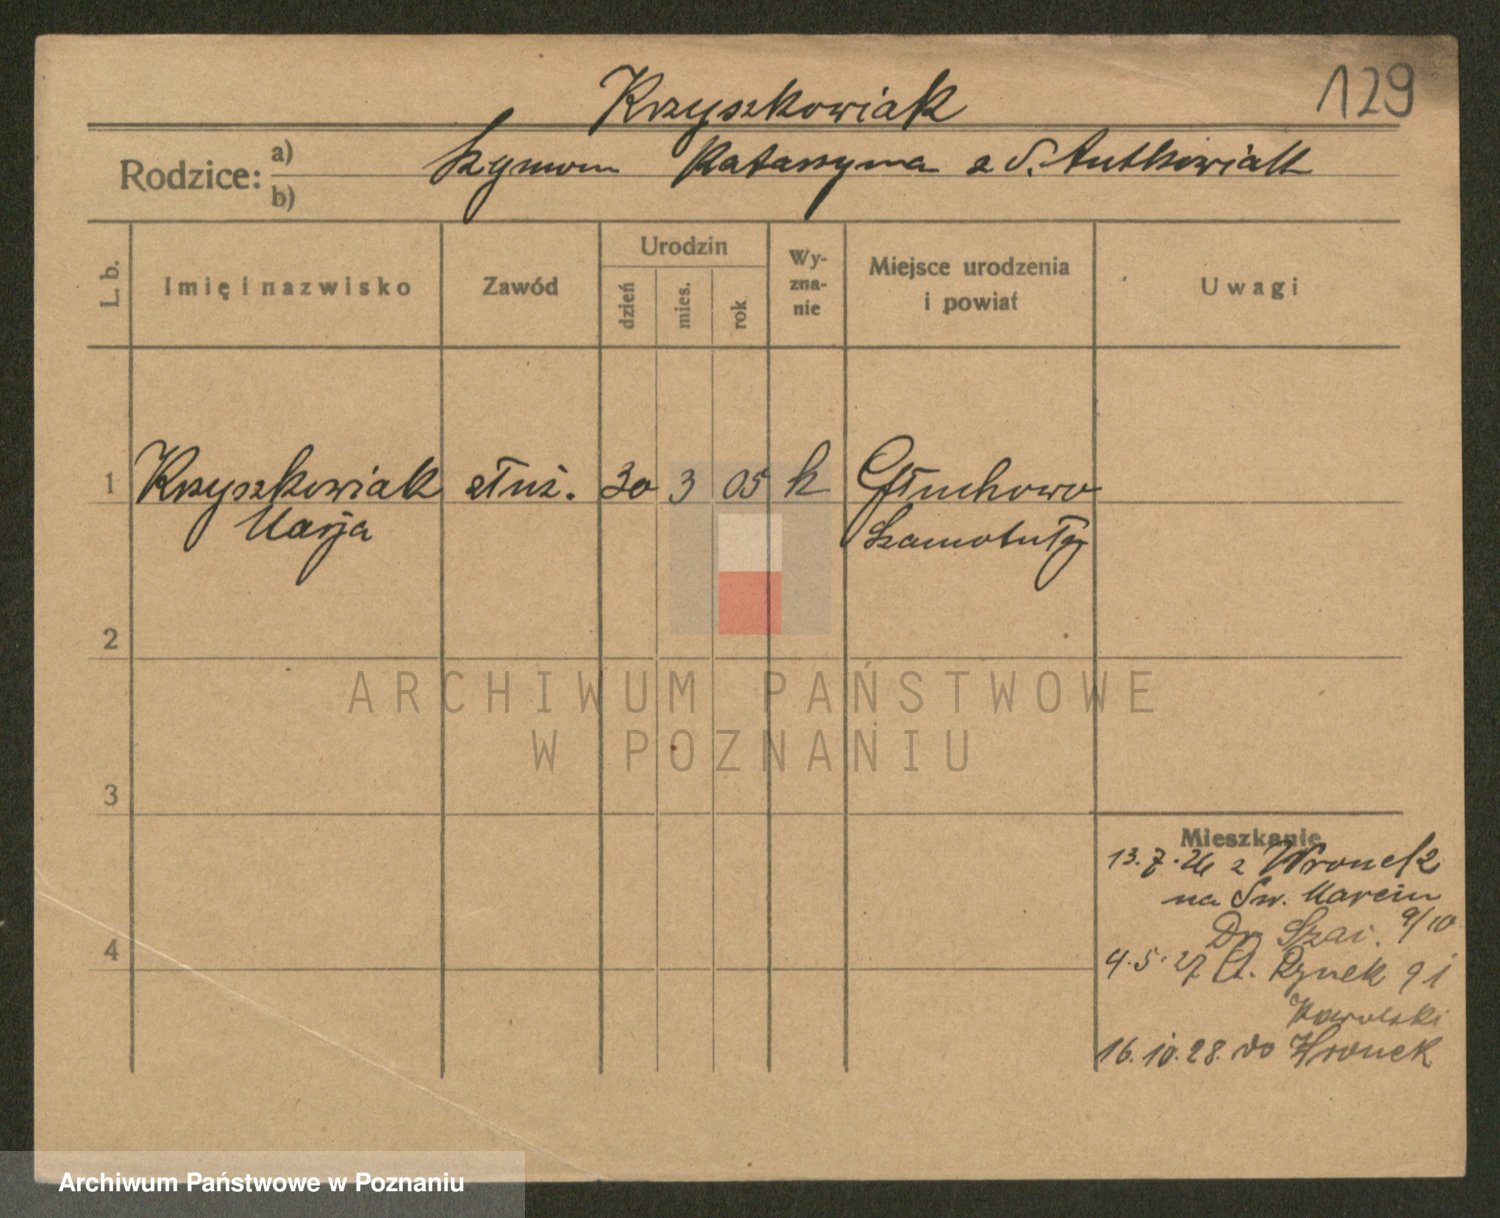 129
Krzyszkowiak
Rodzice: a) b) Szymon Katarzyna z d. Antkowiak
L. b.
Imię i nazwisko
Zawód
Urodzin
dzień
mies.
rok
Wy-
zna-
nie
Miejsce urodzenia
i powiat
Uwagi
1 Krzyszkowiak służ. 30 3 05 k Głuchowo
Marja Szamotuły
2
ARCHIWUM PAŃSTWOWE
W POZNANIU
3
Mieszkanie
13.7.26 z Wronek
na Św. Marcin
9/10
4
4.5.27 St. Rynek 91
16.10.28. do Wronek
Archiwum Państwowe w Poznaniu